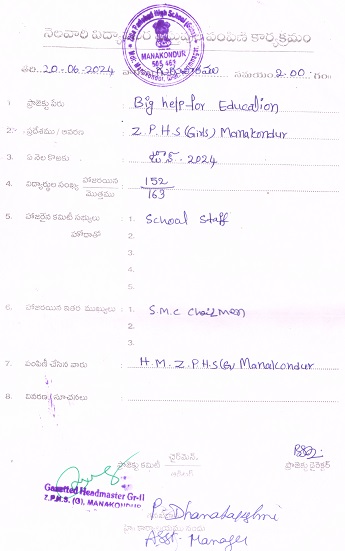 నెలవారి విద్యా పంపిణి కార్యక్రమం
Zilla Parishad High School (Girls)
MANAKONDUR
505 469
తేది: 20-06-2024 గురువారము సమయం: 2.00: గం
1. ప్రాజెక్టు పేరు : Big help for Education
2. ప్రదేశము / వివరణ : Z.P.H.S (Girls) Manakondur
3. ఏ నెల కొరకు : జూన్ - 2024
4. విద్యార్థుల సంఖ్య హాజరయిన / మొత్తము : 152 / 163
5. హాజరైన కమిటి సభ్యులు : 1. School Staff
హోదాతో 2.
3.
4.
5.
6. హాజరయిన ఇతర ముఖ్యులు : 1. S.M.C Chairman
2.
3.
7. పంపిణీ చేసిన వారు : H.M. Z.P.H.S (G) Manakondur
8. వివరణ / సూచనలు :
ప్రాజెక్టు కమిటీ చైర్‌మెన్
ప్రాజెక్టు డైరెక్టర్
Gazetted Headmaster Gr-II
Z.P.H.S. (G), MANAKONDUR
P. Dhanalaxmi
Asst. Manager